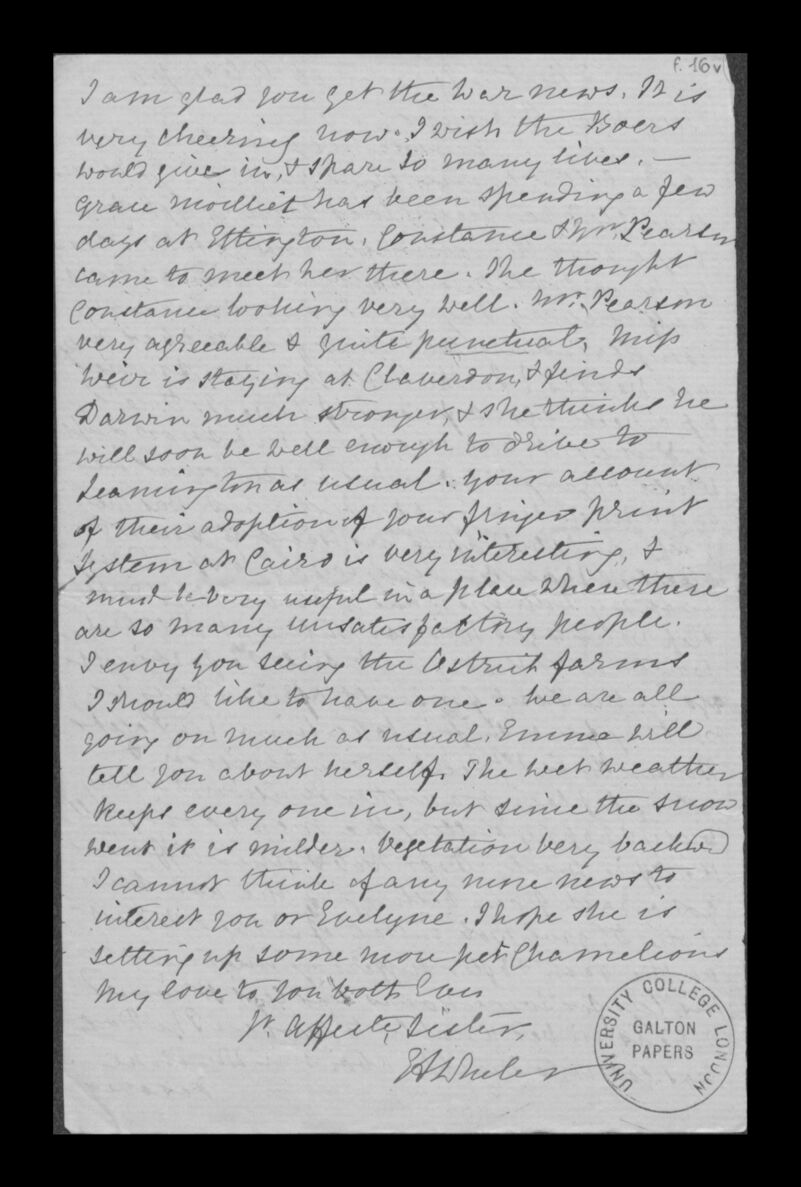 f. 16v
I am glad you get the War news. It is
very cheering now. I wish the Boers
would give in, & spare so many lives. —
Grace Moilliet has been spending a few
days at Ettington. Constance & Mr. Pearson
came to meet her there. She thought
Constance looking very well. Mr. Pearson
very agreeable & quite punctual. Miss
Weir is staying at Claverdon, & finds
Darwin much stronger, & she thinks he
will soon be well enough to drive to
Leamington as usual. Your account
of their adoption of your finger print
system at Cairo is very interesting, &
must be very useful in a place where there
are so many unsatisfactory people.
I envy you seeing the Ostrich farms
I should like to have one. We are all
going on much as usual. Emma will
tell you about herself. The wet weather
keeps every one in, but since the snow
went it is milder. Vegetation very backwd
I cannot think of any more news to
interest you or Evelyne. I hope she is
setting up some more pet Chameleons
My love to you both Ever
Yr. Affecte. Sister,
E A Wheler
UNIVERSITY COLLEGE LONDON
GALTON
PAPERS